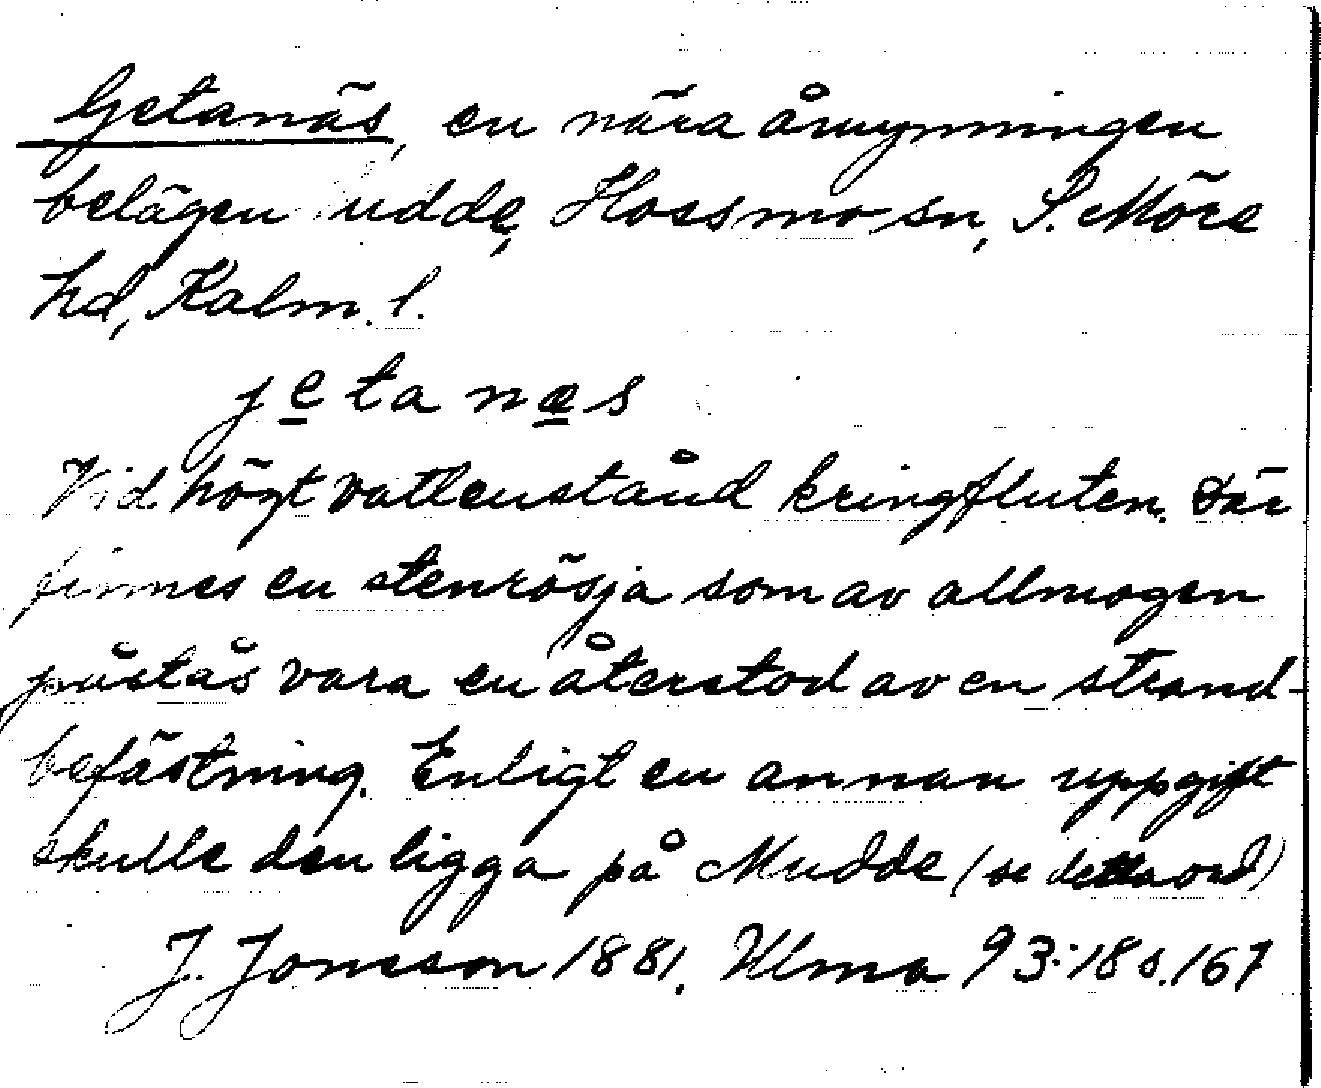 Getanäs, en nära åmynningen
belägen udde, Hossmo sn, S. Möre
hd, Kalm. l.
jetanæs
Vid högt vattenstånd kringfluten. Där
finnes en stenrösja som av allmogen
påstås vara en återstod av en strand-
befästning. Enligt en annan uppgift
skulle den ligga på Mudde (se detta ord)
J. Jonsson 1881, Ulma 93:18 s. 167